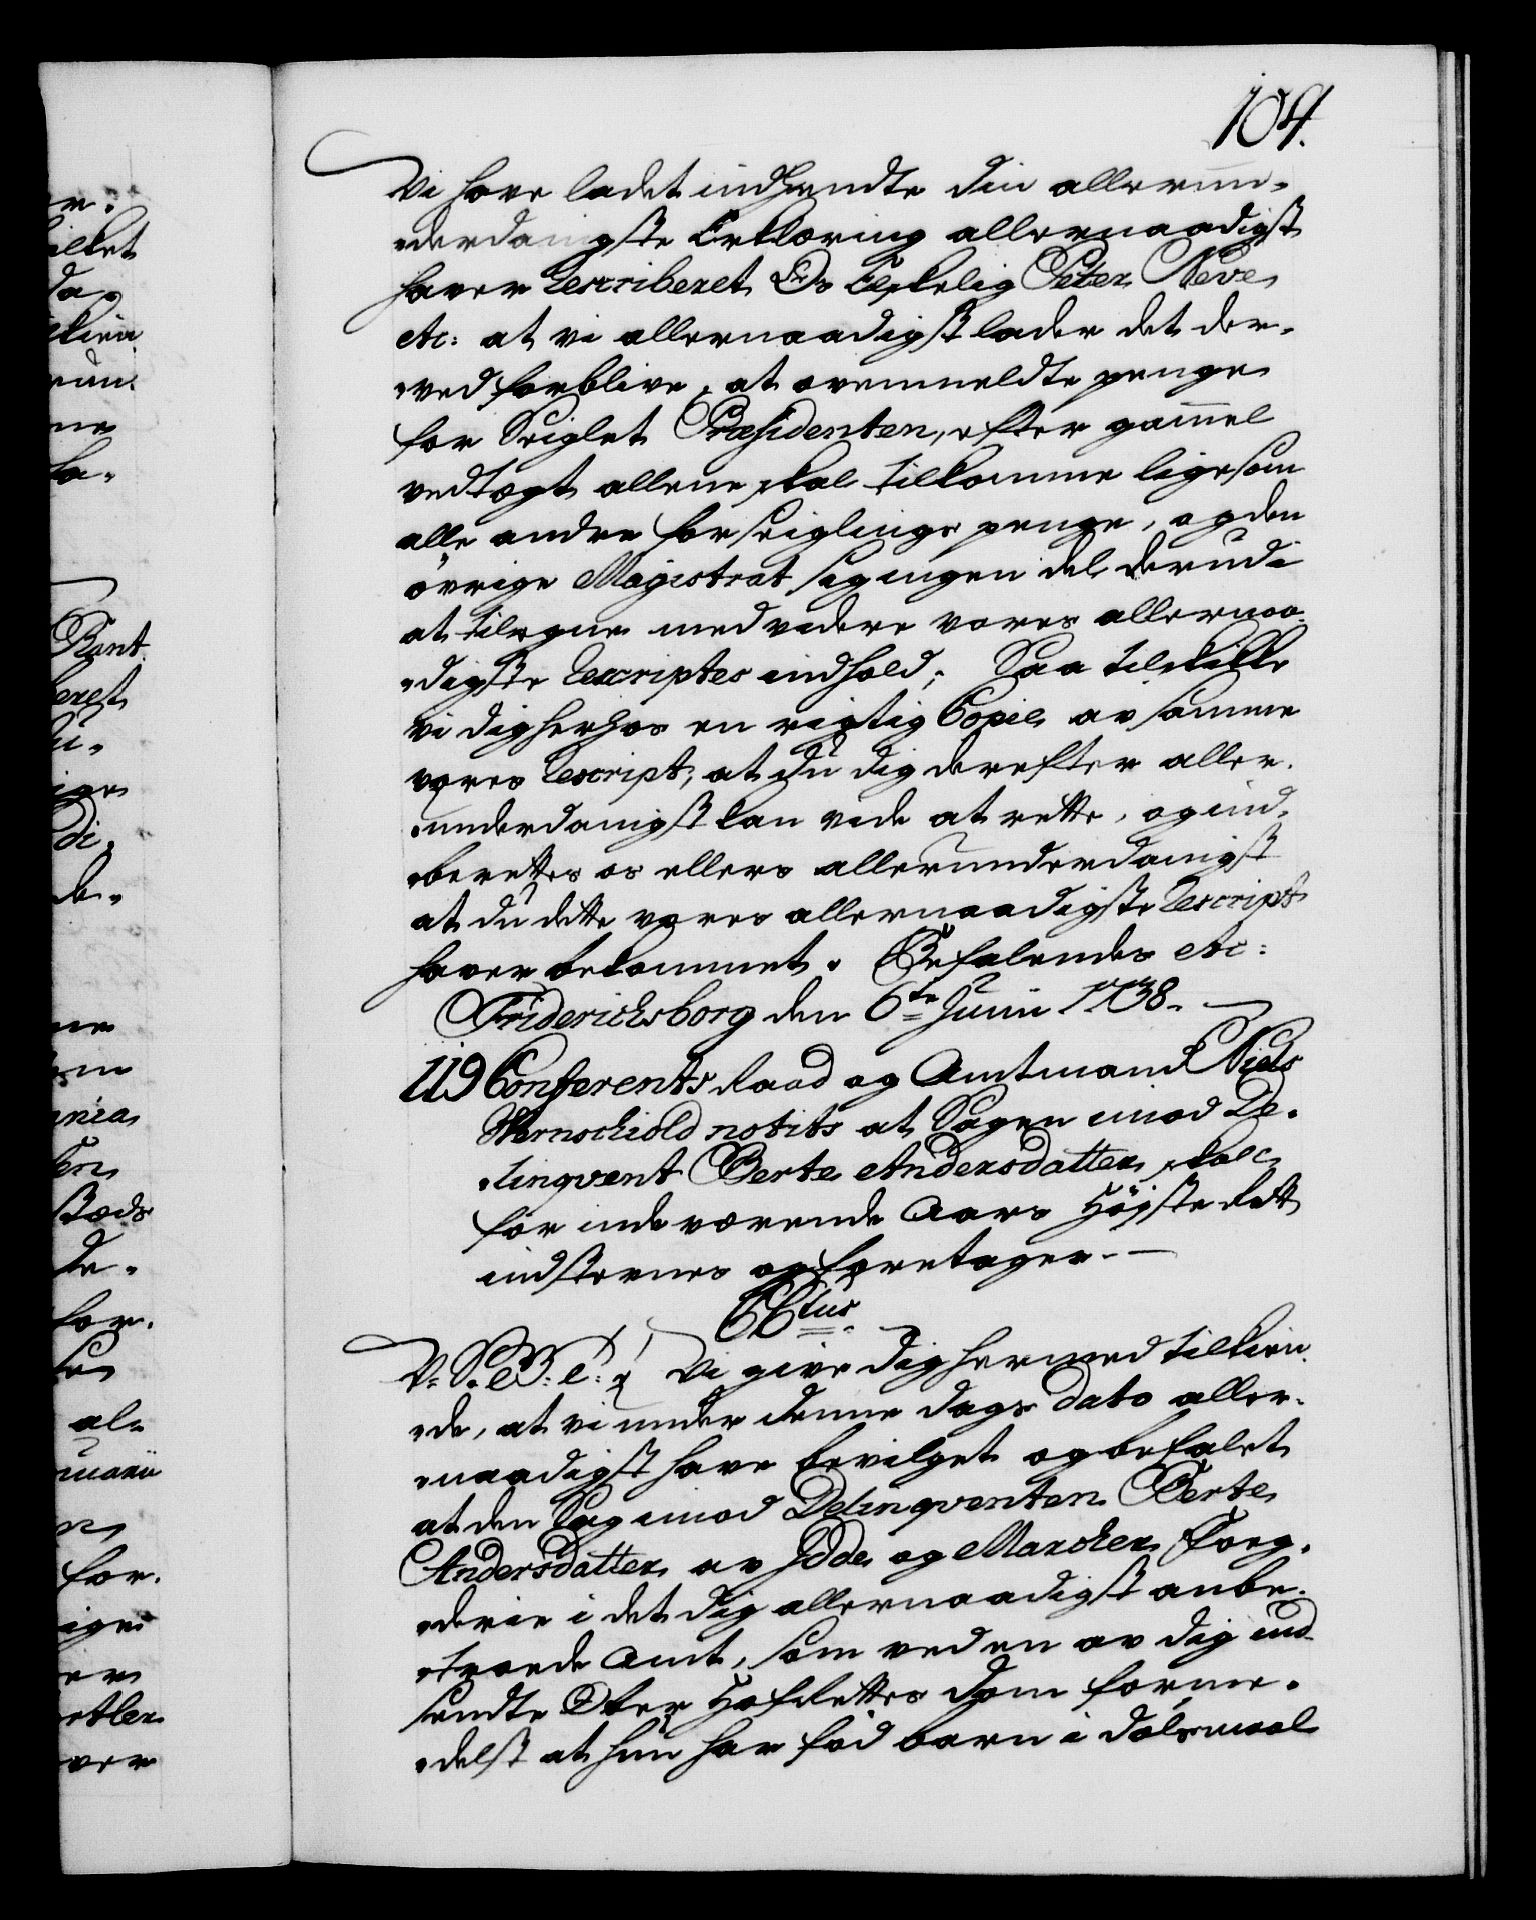 104.
Vi have ladet indhændte din allerun-
derdanigste Erklæring allernaadigst
haver Rescriberet Os Elskelig Peter Neve
etc: at vi allernaadigst lader det der-
ved forblive, at ovenmeldte penge
for Seiglet Præsidenten, efter gam̄el
vedtægt allene skal tilkomme ligesom
alle andre forseiglings penge, og den
övrige Magistrat sig ingen del derudi
at tilegne med videre vores allernaa-
digste Rescriptes indhold; Saa tilskikke
vi dig herhos en rigtig Copie av samme
vores Rescript, at du dig derefter aller-
underdanigst kan vide at rette, og ind-
berettes os ellers allerunderdanigst
at du dette vores allernaadigste Rescript
haver bekommet. Befalendes etc:
Friderichsborg den 6te Junii 1738.
119 Conferents Raad og Amtmand Niels
Wernschiold notits at Sagen imod De-
linqvent Berte Andersdatter skal
for inde værende Aars Höjste Rett
indstevnes og foretages.
CCtus
V. S. B. e: Vi give dig hermed tilkien-
de, at vi under denne dags dato aller-
naadigst have bevilget og befalet
at den Sag imod Delinqventen Berte
Andersdatter av Idde og Marcker Foeg-
derie i det dig allernaadigst anbe-
troede Amt, som ved en av dig ind-
sendte Ober Hofrettes dom forme-
delst at hun har fód barn i dólsmaal
er.
illet
da
ne
Bent.
eret
di
de-
me
nia
ten
stæds
de-
for.
al-
for.
ige
ver